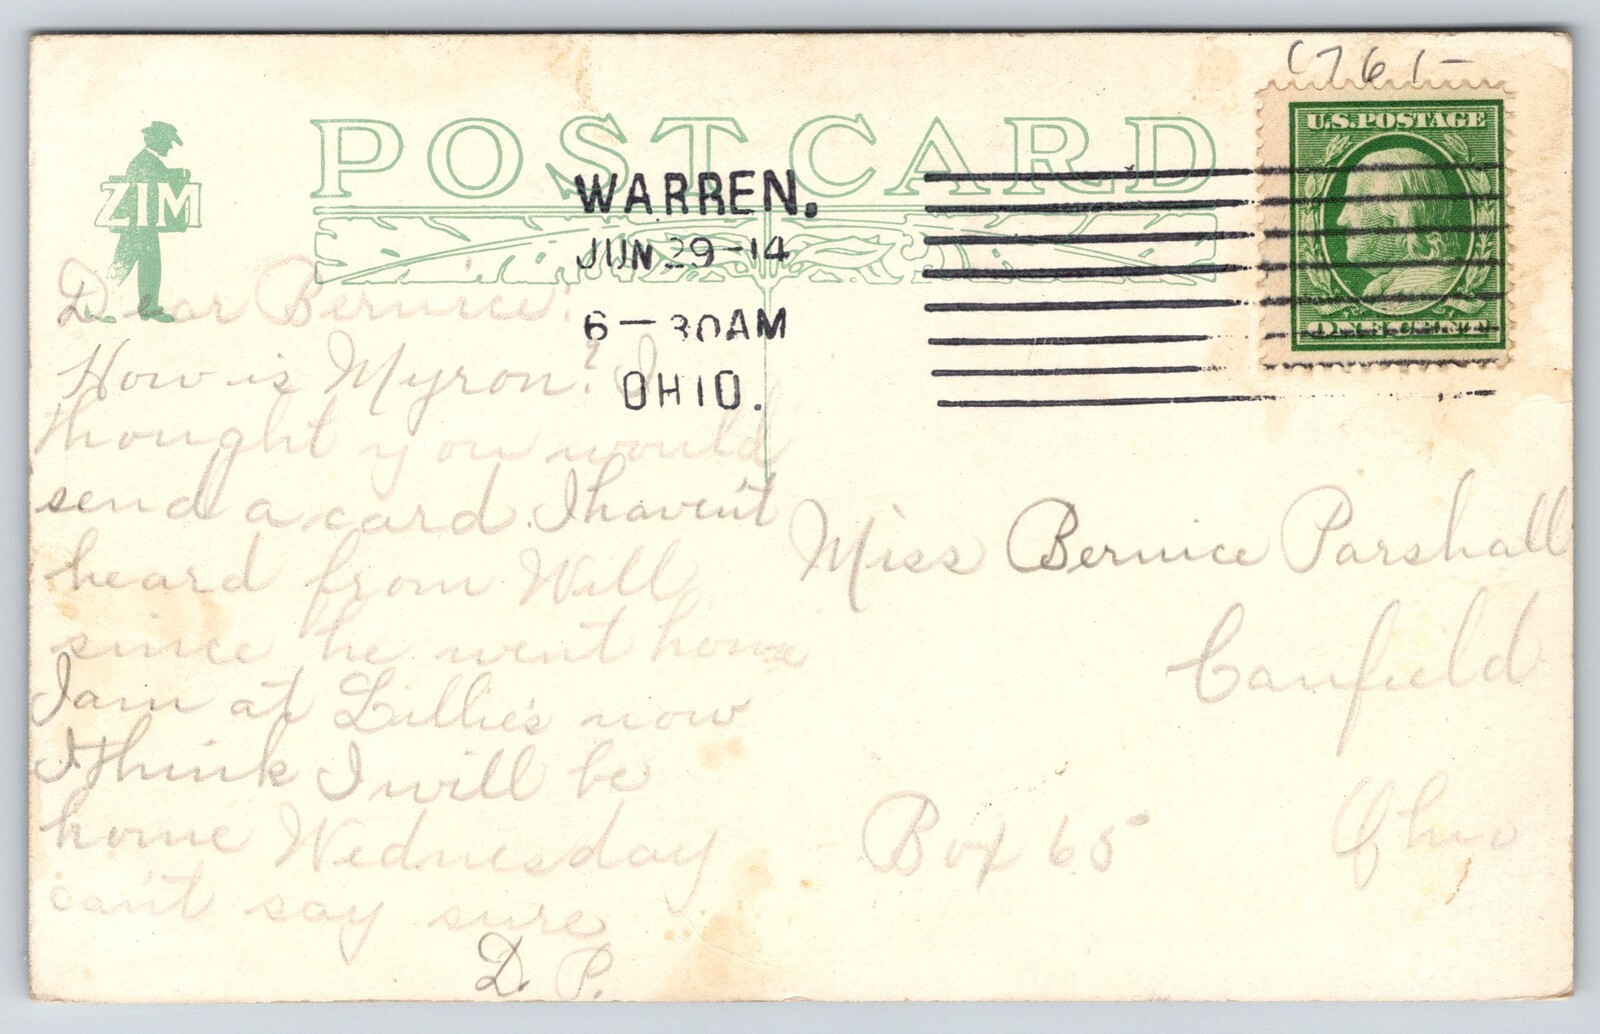 1761-
U.S.POSTAGE
POST CARD
ZIM
WARREN.
JUN 29-14
6-30AM
OHIO.
ONE CENT
Dear Bernice:
How is Myron? I
thought you would
send a card. I haven't
heard from Will
since he went home
I am at Lillie's now
I think I will be
home Wednesday
can't say sure
D. P.
Miss Bernice Parshall
Canfield
Ohio
Box 65